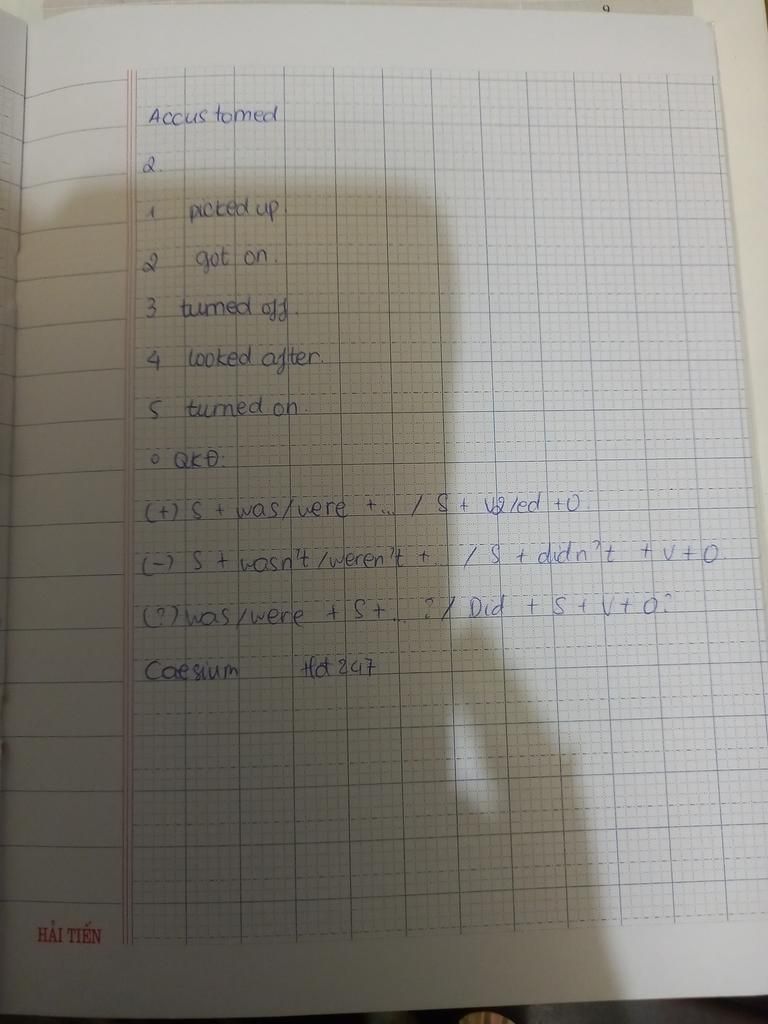 9
Accustomed
2.
1 picked up.
2 got on.
3 turned off.
4 looked after.
5 turned on.
o QKĐ:
(+) S + was/were +... / S + V2/ed + O.
(-) S + wasn't/weren't +... / S + didn't + V + O
(?) was/were + S + ... ? / Did + S + V + O?
Caesium
HẢI TIẾN